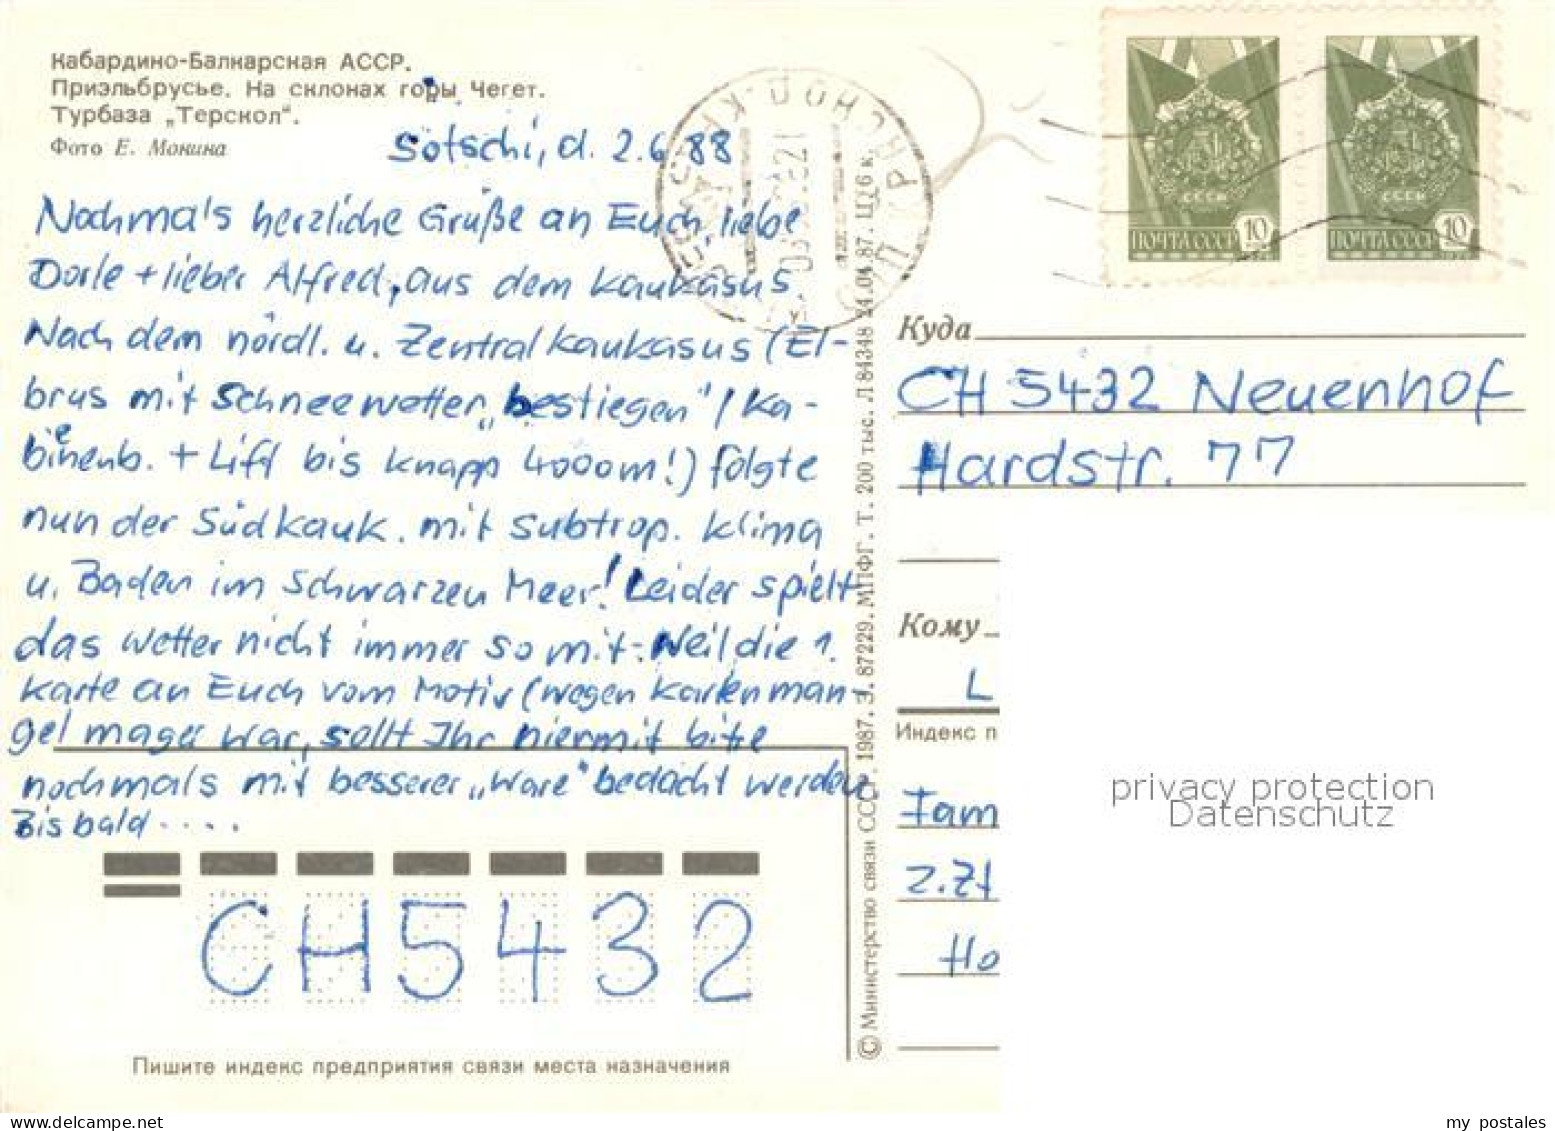 Кабардино-Балкарская АССР.
Приэльбрусье. На склонах горы Чегет.
Турбаза „Терскол".
Фото Е. Монина
Sotschi, d. 2.6 88
Nochmals herzliche Grüße an Euch liebe
Dorle + lieber Alfred, aus dem Kaukasus
Nach dem nördl. u. Zentralkaukasus (El-
brus mit Schneewetter „bestiegen"/ Ka-
binenb. + Lift bis knapp 4000m!) folgte
nun der Südkauk. mit subtrop. Klima
u. Baden im Schwarzen Meer! Leider spielt
das Wetter nicht immer so mit. Weil die 1.
Karte an Euch vom Motiv (wegen Kartenman-
gel mager war, sollt Ihr hiermit bitte
nochmals mit besserer „Ware" bedacht werden
Bis bald ....
CH5432
Пишите индекс предприятия связи места назначения
© Министерство связи СССР. 1987. З. 87229. МПФГ. Т. 200 тыс. Л 84348 14.04.87. Ц. 6 к.
ПОЧТА СССР 10
ПОЧТА СССР 10
Куда
CH 5432 Neuenhof
Hardstr. 77
Кому
L
Индекс п
Fam
z.Zt
Ho
privacy protection
Datenschutz
my postales